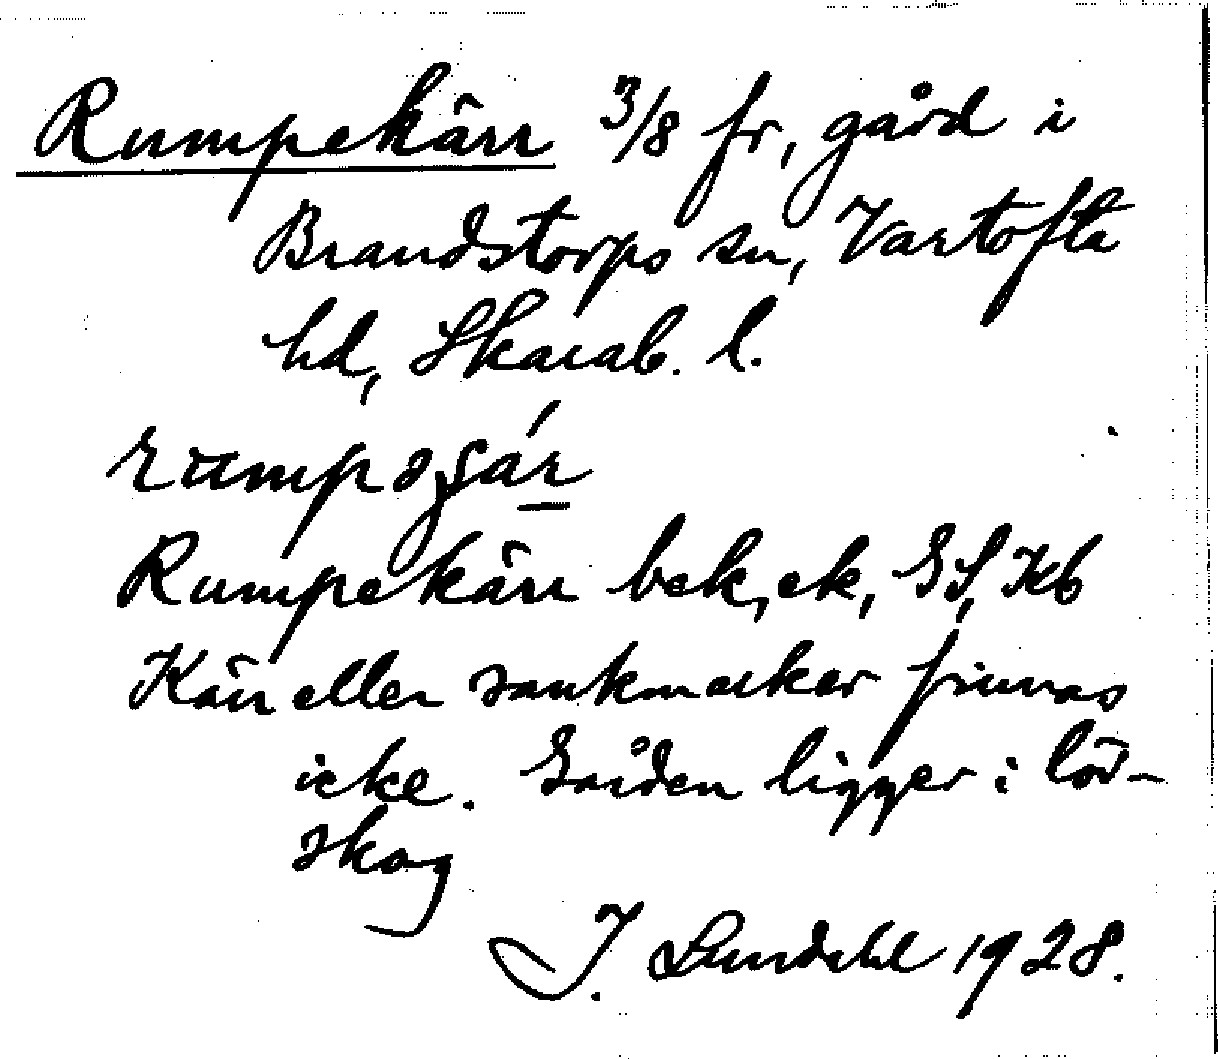 Rumpekärr 3/8 fr, gård i
Brandstorps sn, Vartofta
hd, Skarab. l.
Rumpekärr bek, ek, GS, Kb
Kärr eller sankmarker finnas
icke. Gården ligger i löv-
skog
J. Lundahl 1928.